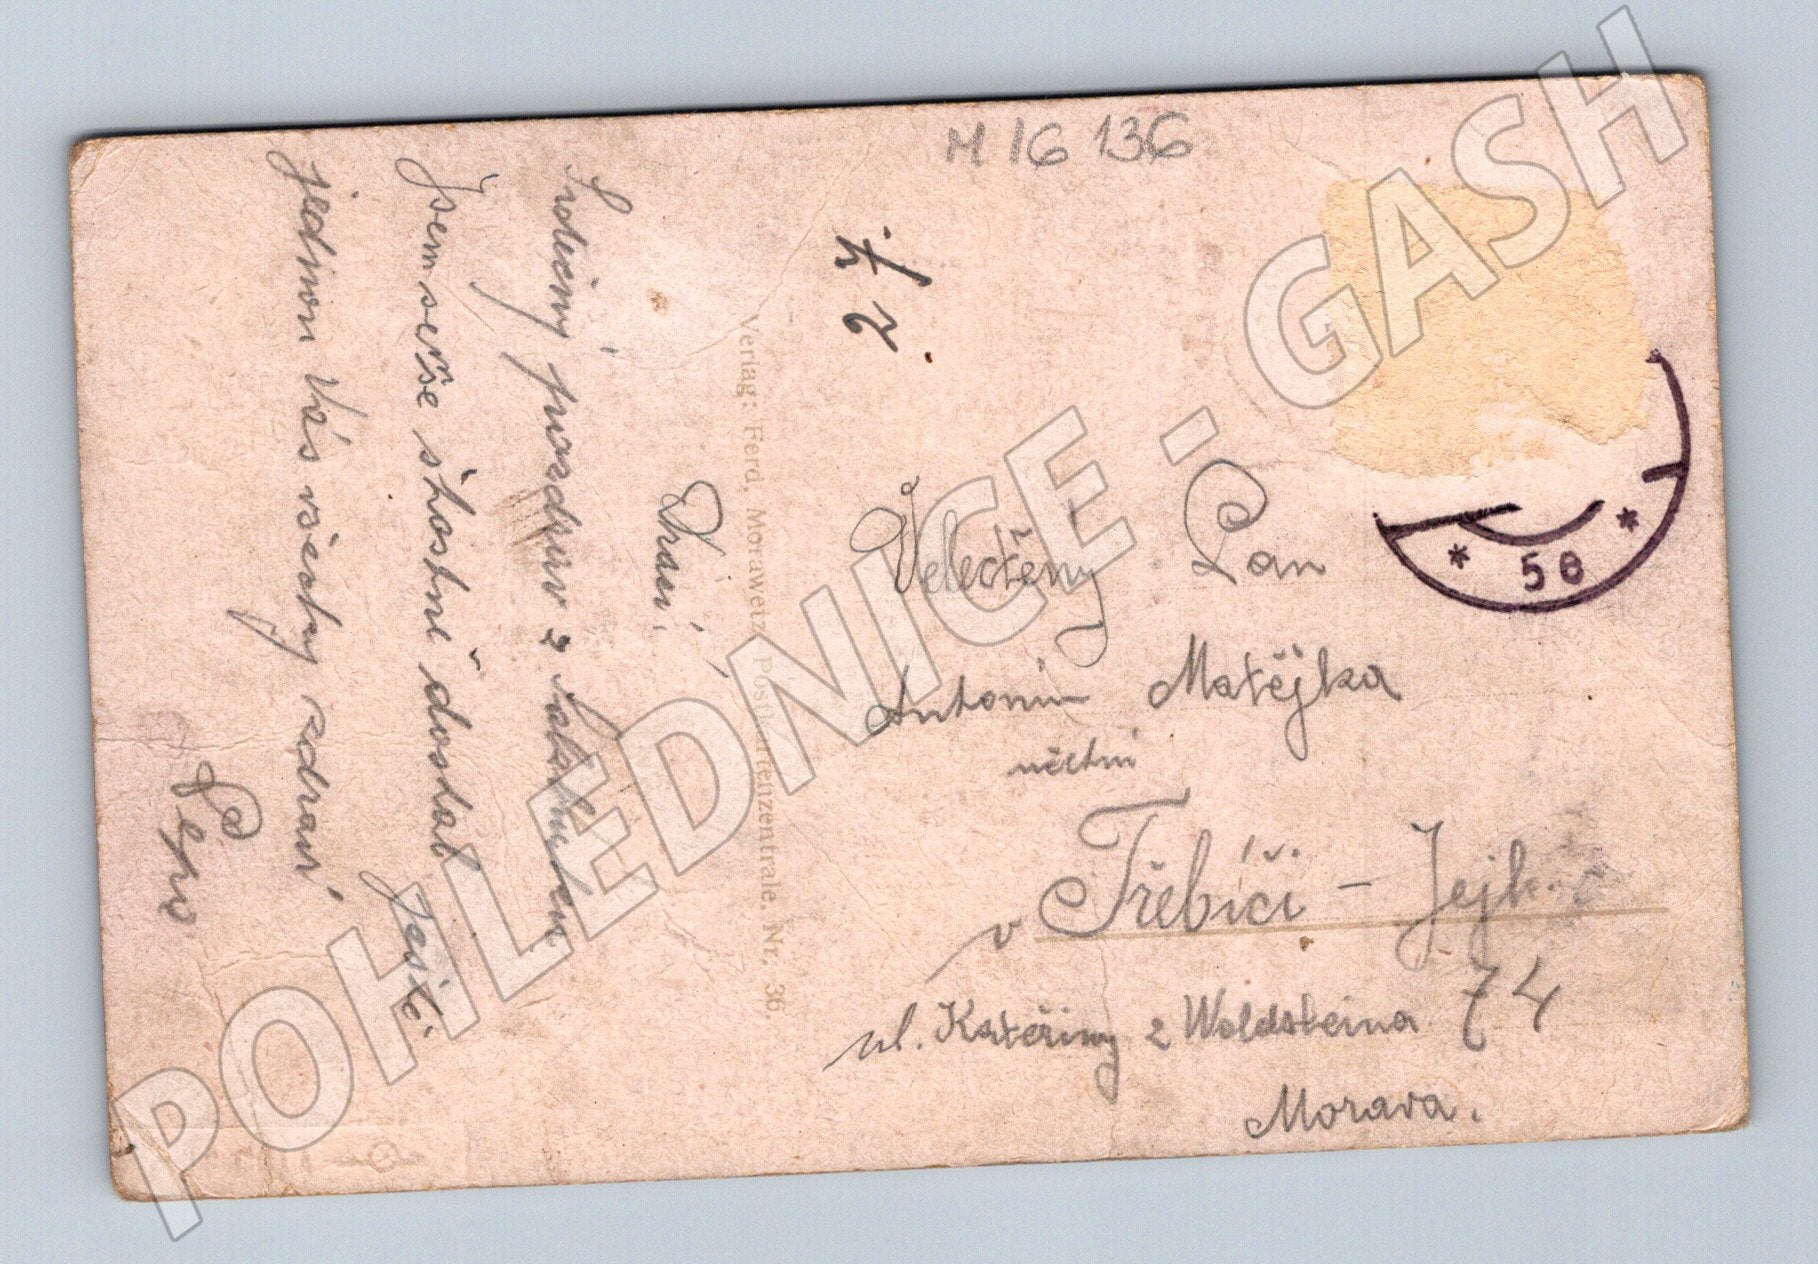 M 16 136
Drazí!
Srdečný pozdrav z
Jsem se vše šťastně dostal
jedinou Vás všecky zdraví
Pepa
Verlag: Ferd. Morawetz, Postkartenzentrale. Nr. 36.
Velectěný Pan
Antonín Matějka
účetní
v Třebíči - Jejk
ul. Kateřiny z Waldsteina 74
Morava.
* 5e *
POHLEDNICE - GASH